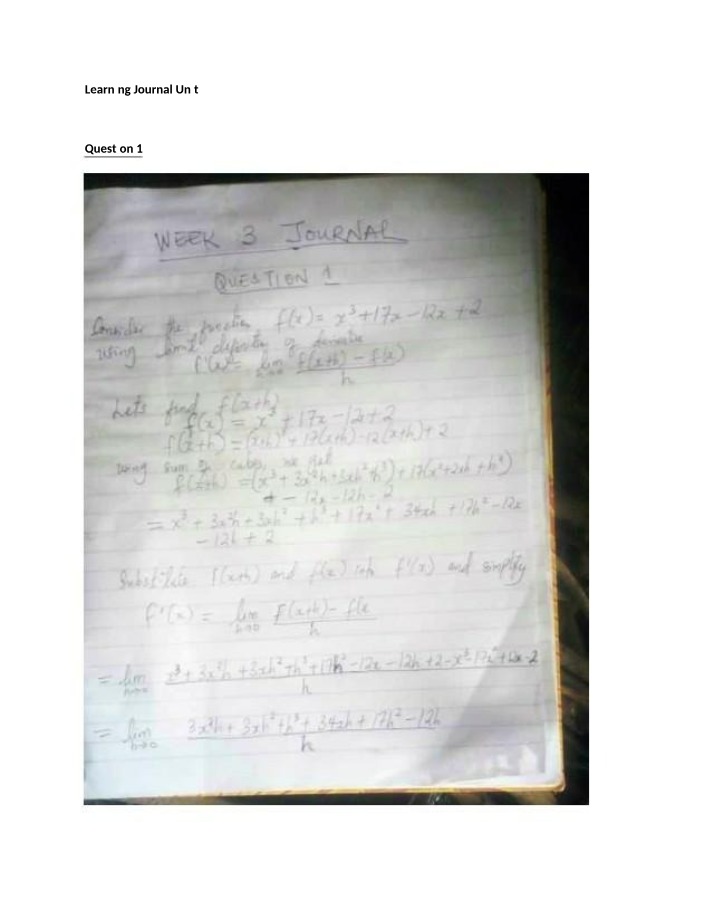 Learn ng Journal Un t
Quest on 1
WEEK 3 JOURNAL
QUESTION 1
Consider the function f(x) = x³ + 17x - 12x + 2
using limit definition of derivative
f'(x) = lim h→0 f(x+h) - f(x)
h
Lets find f(x+h)
f(x) = x³ + 17x - 12x + 2
f(x+h) = (x+h)³ + 17(x+h) - 12(x+h) + 2
using sum of cubes, we get
f(x+h) = (x³ + 3x²h + 3xh² + h³) + 17(x² + 2xh + h²)
- 12x - 12h - 2
= x³ + 3x²h + 3xh² + h³ + 17x² + 34xh + 17h² - 12x
- 12h + 2
Substitute f(x+h) and f(x) into f'(x) and simplify
f'(x) = lim h→0 F(x+h) - f(x
h
= lim x³ + 3x²h + 3xh² + h³ + 17h² - 12x - 12h + 2 - x³ - 17x² + 12x - 2
h
= lim h→0 3x²h + 3xh² + h³ + 34xh + 17h² - 12h
h